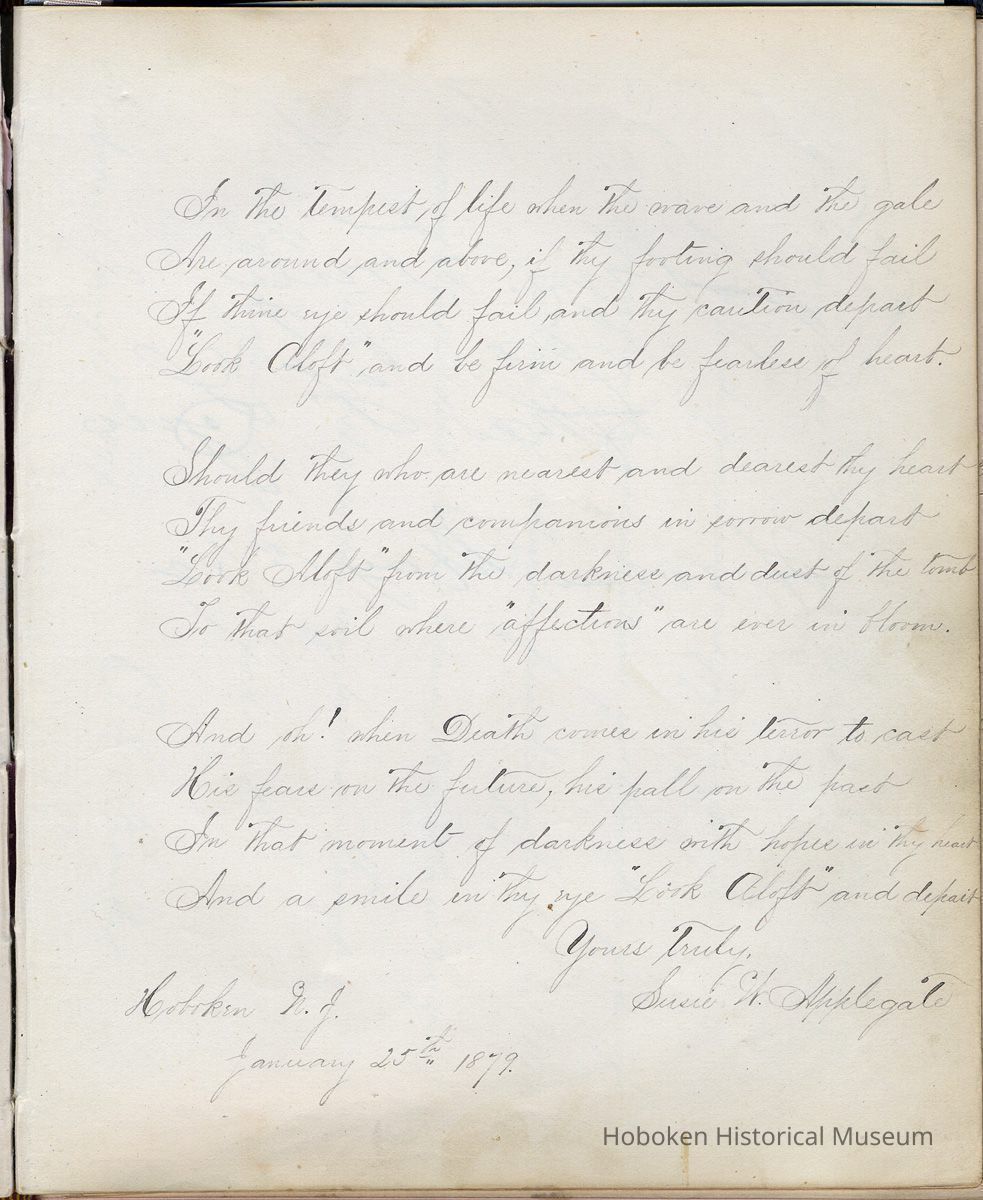 In the tempest of life when the wave and the gale
Are around and above, if thy footing should fail
If thine eye should fail and thy caution depart
"Look Aloft" and be firm and be fearless of heart.
Should they who are nearest and dearest thy heart
Thy friends and companions in sorrow depart
"Look Aloft" from the darkness and dust of the tomb
To that soil where "affections" are ever in bloom.
And oh! when Death comes in his terror to cast
His fears on the future, his pall on the past
In that moment of darkness with hopes in thy heart
And a smile in thy eye "Look Aloft" and depart
Yours Truly,
Susie W. Applegate
Hoboken N. J.
January 25th 1879.
Hoboken Historical Museum